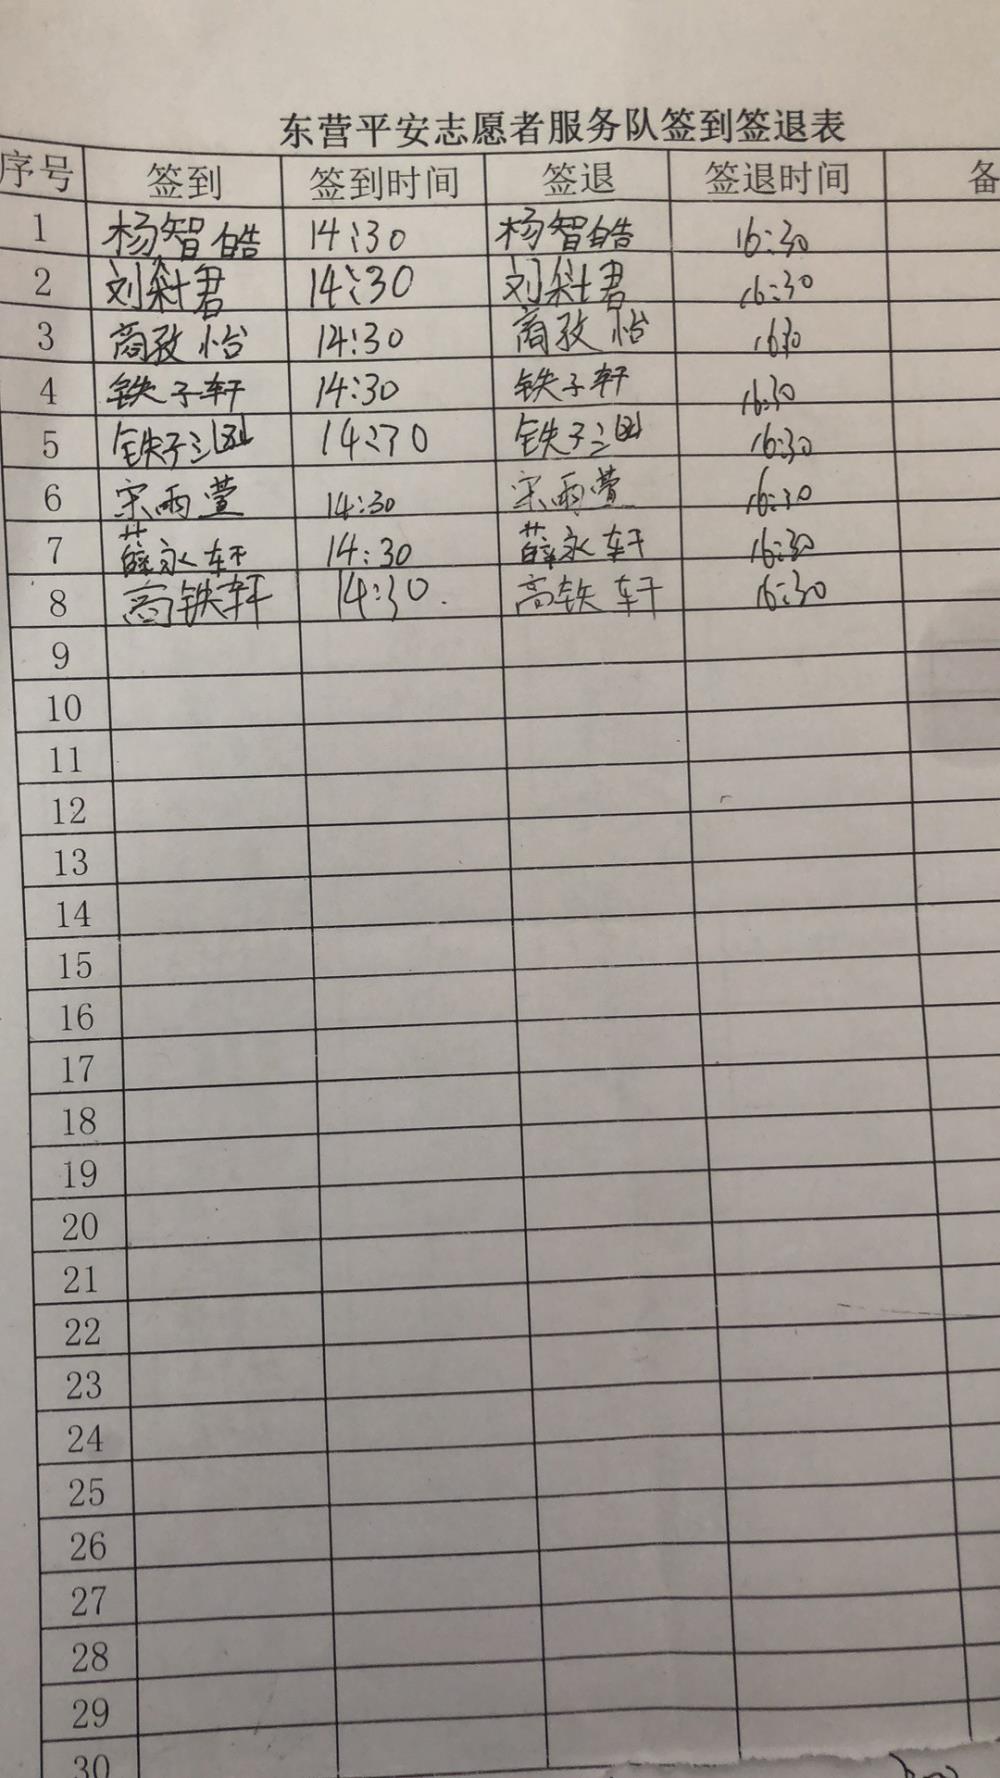 东营平安志愿者服务队签到签退表
序号 签到 签到时间 签退 签退时间 备
1 杨智皓 14:30 杨智皓 16:30
2 刘科君 14:30 刘科君 16:30
3 商孜怡 14:30 商孜怡 16:30
4 铁子轩 14:30 铁子轩 16:30
5 铁子 14:30 铁子 16:30
6 宋雨萱 14:30 宋雨萱 16:30
7 薛永轩 14:30 薛永轩 16:30
8 高铁轩 14:30 高铁轩 16:30
9
10
11
12
13
14
15
16
17
18
19
20
21
22
23
24
25
26
27
28
29
30